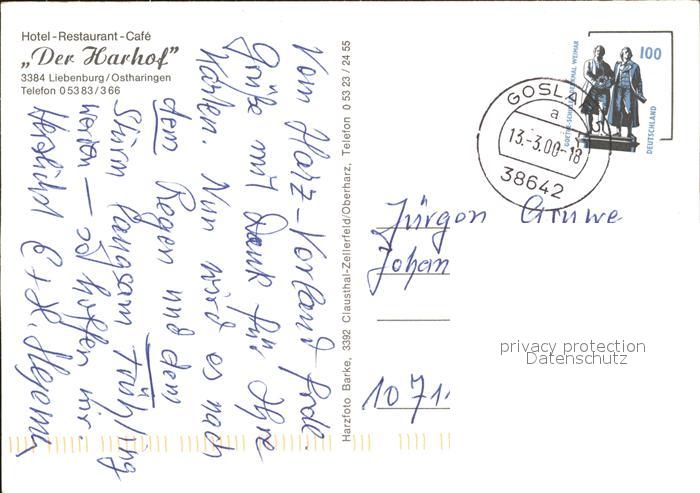 Hotel-Restaurant-Café
„Der Harhof”
3384 Liebenburg/Ostharingen
Telefon 0 53 83/3 66
Vom Harz-Vorland
Grüße mit Dank für Ihre
Karten. Nun wird es nach
dem Regen und dem
Sturm langsam Frühling
werden — so hoffen wir.
Herzlichst E + H.
Harzfoto Barke, 3392 Clausthal-Zellerfeld/Oberharz, Telefon 0 53 23 / 24 55
GOETHE-SCHILLER-DENKMAL WEIMAR
100
DEUTSCHLAND
GOSLA
a
13.-3.00-18
38642
Jürgen
Johan
1071
privacy protection
Datenschutz